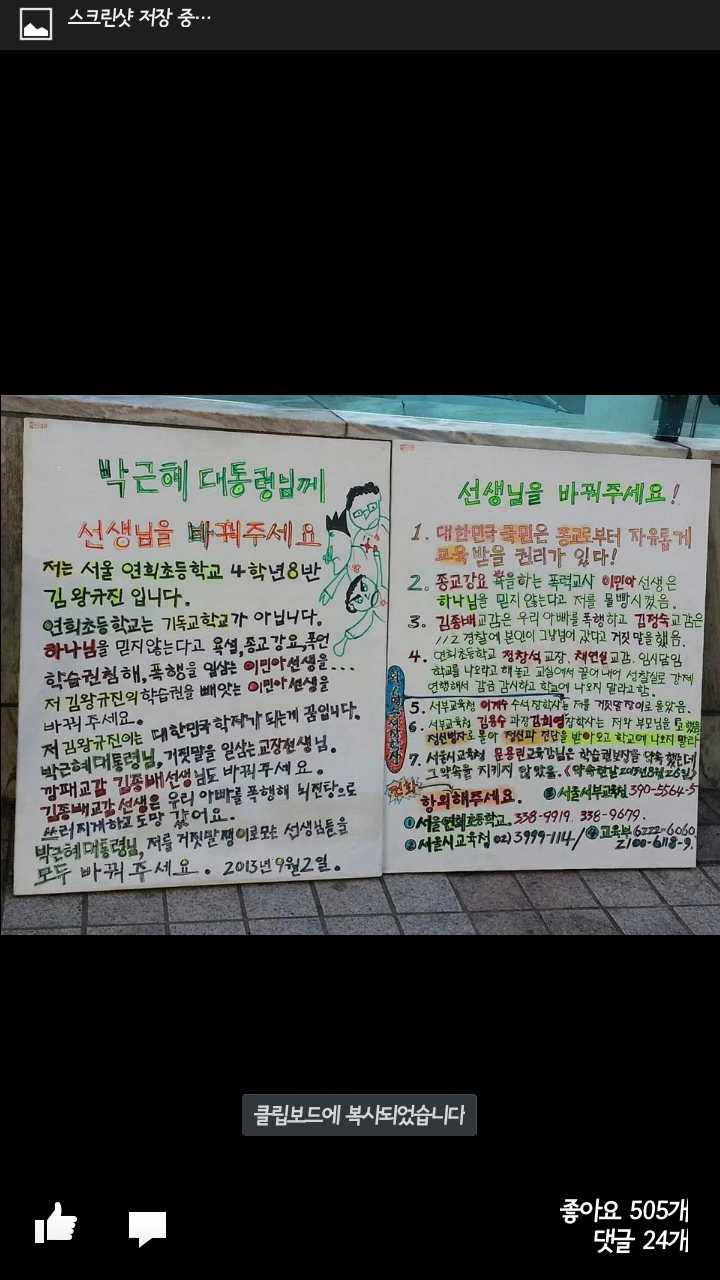 스크린샷 저장 중…
박근혜 대통령님께
선생님을 바꿔주세요
저는 서울 연희초등학교 4학년8반
김 왕규진 입니다.
연희초등학교는 기독교학교가 아닙니다.
하나님을 믿지않는다고 욕설,종교강요,폭언
학습권침해,폭행을 일삼는 이민아선생을...
저 김왕규진의학습권을 빼앗는 이민아선생을
바꿔주세요.
저 김왕규진이는 대한민국학제가 되는게 꿈입니다.
박근혜대통령님,거짓말을 일삼는교장선생님.
깡패교감 김종배선생님도 바꿔주세요.
김종배교감선생은 우리 아빠를 폭행해 뇌진탕으로
쓰러지게하고도망 갔어요.
박근혜대통령님, 저를 거짓말쟁이로모는 선생님들을
모두 바꿔 주세요. 2013년9월2일.
선생님을 바꿔주세요!
1. 대한민국 국민은 종교로부터 자유롭게
교육 받을 권리가 있다!
2. 종교강요 욕을하는 폭력교사 이민아선생은
하나님을 믿지 않는다고 저를 몰빵시켰음.
3. 김종배교감은 우리아빠를 폭행하고 김정숙교감은
112 경찰에 본인이 그냥넘어 갔다고 거짓말을했음.
4. 연희초등학교 정창석교장, 채연실교감, 임시담임
학교를 나오라고 해놓고 교실에서 끌어내어 성찰실로 강제
연행해서 감금 감시하고 학교에 나오지 말라고함.
5. 서부교육청 수석장학사는 저를 거짓말쟁이로 몰았음.
6. 서부교육청 김용수과장 김희영장학사는 저와 부모님을
정신병자로 몰아 정신과 진단을 받아오고 학교에 나오지 말라
7. 서울시교육청 문용린교육감님은 학습권보장을 약속했는데
그약속을 지키지 않았음. (약속한날2013년8월26일)
항의해주세요.
③서울서부교육청 390-5564-5
①서울연희초등학교. 338-9919. 338-9679.
②서울시교육청 02)3999-114/④교육부 6222-6060
2100-6118-9.
클립보드에 복사되었습니다
좋아요 505개
댓글 24개